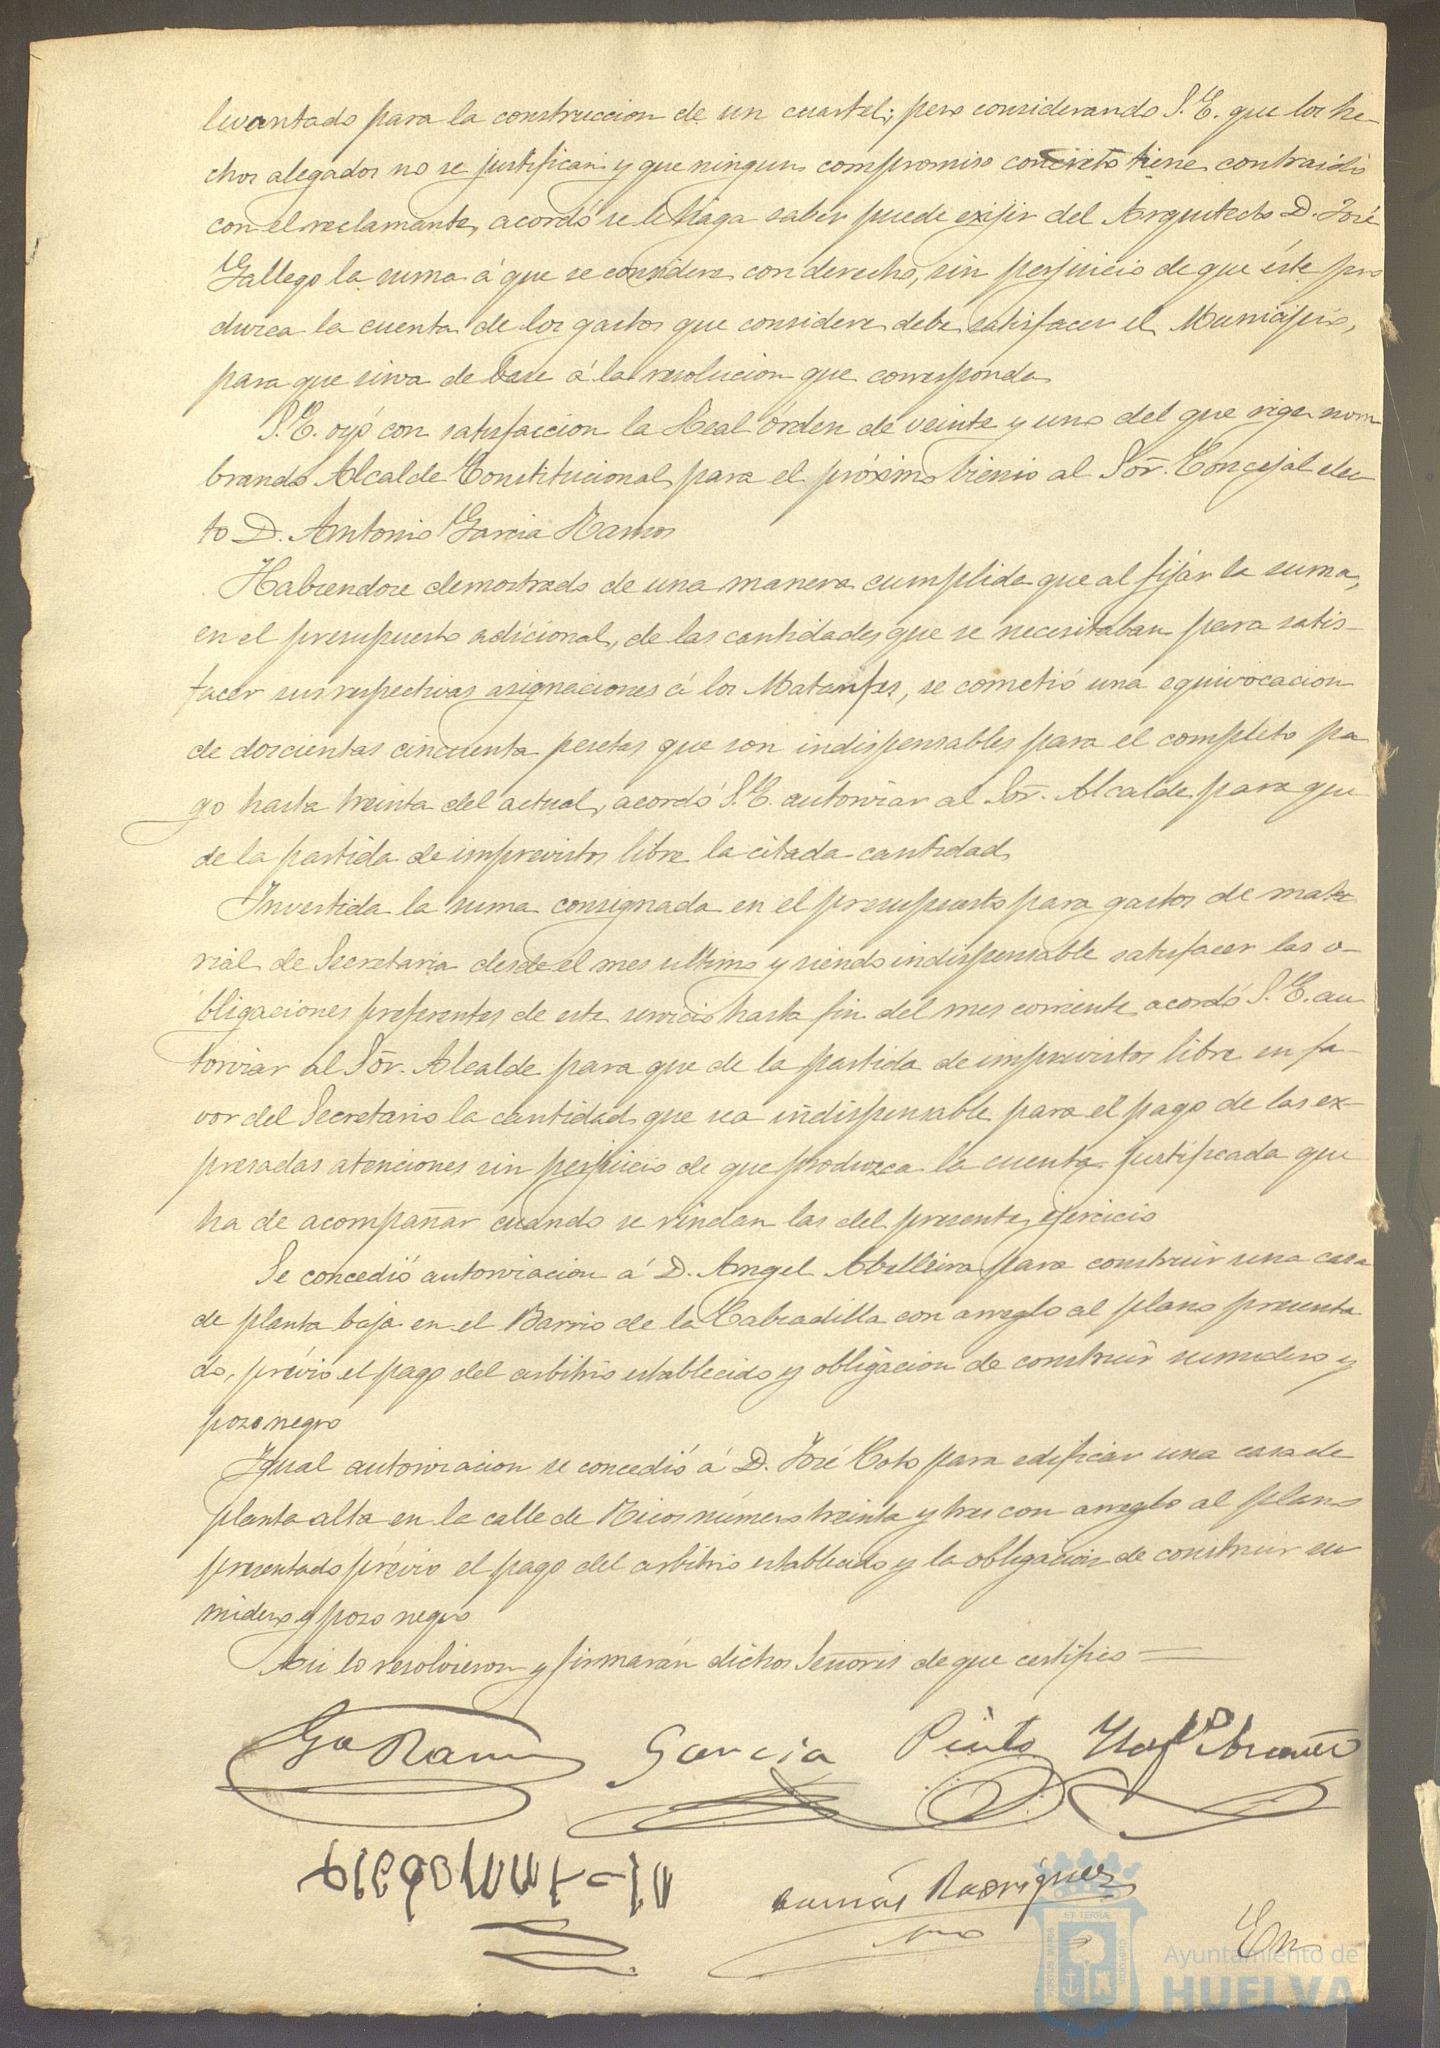 levantado para la construccion de un cuartel; pero considerando S.E. que los he-
chos alegados no se justifican y que ningun compromiso concreto tiene contraido
con el reclamante, acordó se le haga saber puede exijir del Arquitecto D. José
Gallego la suma á que se considere con derecho, sin perjuicio de que éste pro
duzca la cuenta de los gastos que considere debe satisfacer el Municipio,
para que sirva de base á la resolucion que corresponda
S.E. oyó con satisfaccion la Real órden de veinte y uno del que rige nom
brando Alcalde Constitucional para el próximo bienio al Sor. Concejal elec
to D. Antonio Garcia Ramos
Habiendose demostrado de una manera cumplida que al fijar la suma,
en el presupuesto adicional, de las cantidades que se necesitaban para satis-
facer sus respectivas asignaciones á los Matarifes, se cometió una equivocacion
de doscientas cincuenta pesetas que son indispensables para el completo pa
go hasta treinta del actual, acordó S.E. autorizar al Sor. Alcalde para que
de la partida de imprevistos libre la citada cantidad
Invertida la suma consignada en el presupuesto para gastos de mate
rial de Secretaria desde el mes ultimo y siendo indispensable satisfacer las o-
bligaciones preferentes de este servicio hasta fin del mes corriente, acordó S.E. au
torizar al Sor. Alcalde para que de la partida de imprevistos libre en fa-
vor del Secretario la cantidad que sea indispensable para el pago de las ex-
presadas atenciones sin perjuicio de que produzca la cuenta justificada que
ha de acompañar cuando se rindan las del presente ejercicio
Se concedió autorizacion á D. Angel Abelleira para construir una casa
de planta baja en el Barrio de la Calzadilla con arreglo al plano presenta
do, prévio el pago del arbitrio establecido y obligacion de construir sumidero y
pozo negro
Igual autorizacion se concedió á D. José Coto para edificar una casa de
planta alta en la calle de Ricos número treinta y tres con arreglo al plano
presentado prévio el pago del arbitrio establecido y la obligacion de construir su
midero y pozo negro
Asi lo resolvieron y firmarán dichos Señores de que certifico =
Ga Ramos Garcia Pinto
Rodriguez
Ayuntamiento de
HUELVA